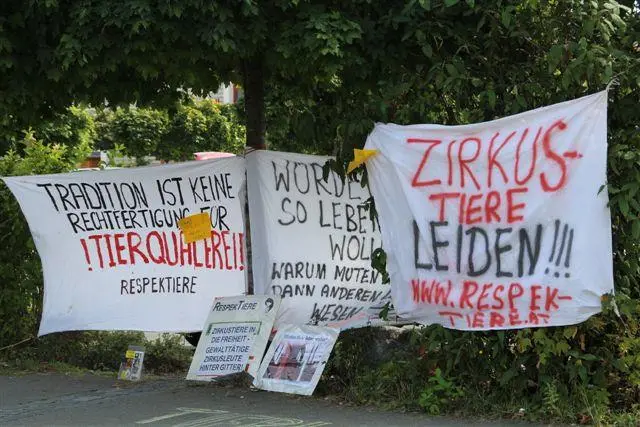 TRADITION IST KEINE
RECHTFERTIGUNG FÜR
!TIERQUÄLEREI!
RESPEKTIERE
WÜRDE
SO LEBE
WOLL
WARUM MUTEN
DANN ANDEREN
WESEN
ZIRKUS-
TIERE
LEIDEN!!!
WWW.RESPEK-
TIERE.AT
RESPEKTIERE
ZIRKUSTIERE IN
DIE FREIHEIT-
GEWALTTÄTIGE
ZIRKUSLEUTE
HINTER GITTER!